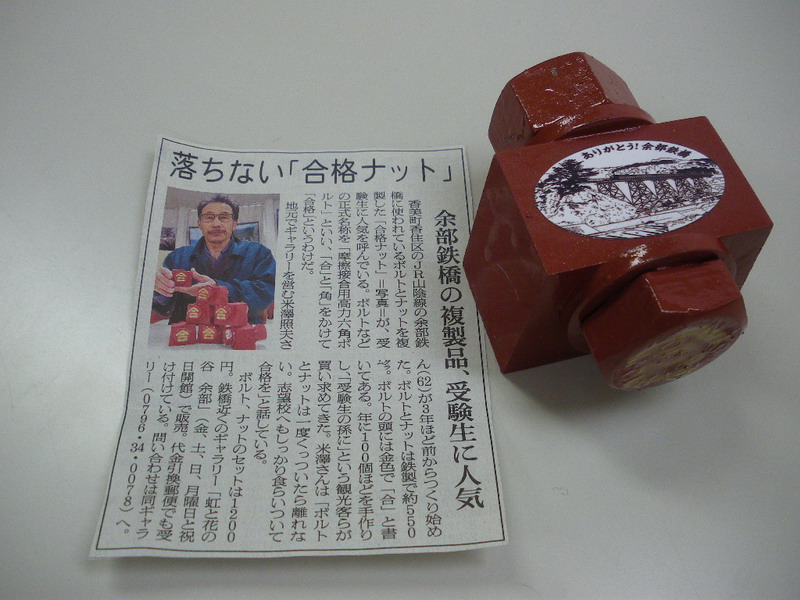 落ちない「合格ナット」
余部鉄橋の複製品、受験生に人気
香美町香住区のJR山陰線の余部鉄
橋に使われているボルトとナットを複
製した「合格ナット」=写真=が、受
験生に人気を呼んでいる。ボルトなど
の正式名称を「摩擦接合用高力六角ボ
ルト」といい、「合」と「角」をかけて
「合格」というわけだ。
地元でギャラリーを営む米澤照夫さ
ん(62)が3年ほど前からつくり始め
た。ボルトとナットは鉄製で約550
㌘。ボルトの頭には金色で「合」と書
いてある。年に100個ほどを手作り
し、「受験生の孫に」という観光客らが
買い求めてきた。米澤さんは「ボルト
とナットは一度くっついたら離れな
い。志望校へもしっかり食らいついて
合格を」と話している。
ボルト、ナットのセットは1200
円。鉄橋近くのギャラリー「虹と花の
谷 余部」(金、土、日、月曜日と祝
日開館)で販売。代金引換郵便でも受
け付けている。問い合わせは同ギャラ
リー(0796・34・0078)へ。
ありがとう!余部鉄橋